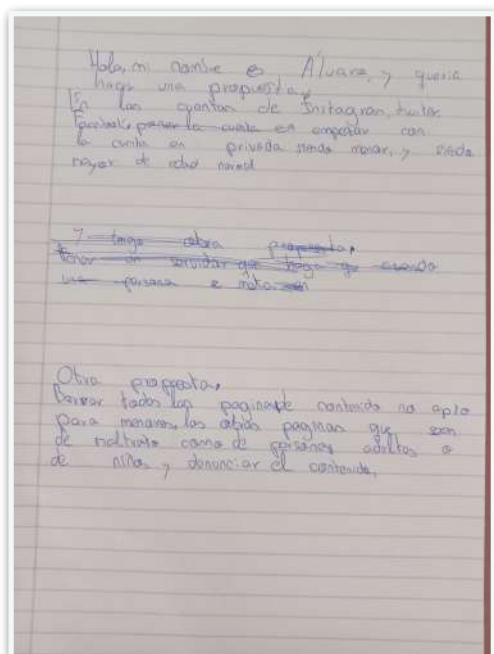 Hola, mi nombre es Álvaro, y quería
hacer una propuesta,
En las cuentas de Initagran, twiter
Facebook, poner la cuenta en empezar con
la cuenta en privada siendo menor, y siendo
mayor de edad normal
y tengo otra propuesta,
tener un servidor que haga que cuando
una persona se meta en
Otra proppesta,
Borrar todos las paginas de contenido no apto
para menores, las otras paginas que son
de maltrato como de personas adultos o
de niños, y denunciar el contenido,